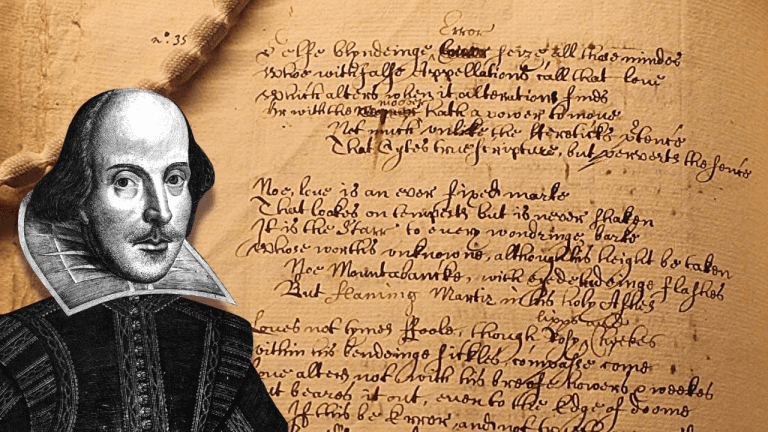 nº: 35
Error
Selfe blyndeinge seize all those mindes
Whoe with false Appellations call that love
Which alters when it alterations finds
moover
Or with the hath a power to move
Not much unlike the Hereticks ptence
That Cytes true Scripture, but perverts the sence
Noe, love is an ever fixed marke
That lookes on tempests but is never shaken
It is the Starr to every wondringe barke
Whose worths unknowne, although his height be taken
Noe Mountabancke, with eye deludeinge flashes
But flaming Martir in his holy Ashes
lipps and
Loves not tymes Foole, though Rosy Cheekes
within his bendeinge sickles compasse come
Love alters not with his breefe howers & weekes
But beares it out, even to the Edge of doome
If this be Error, and not